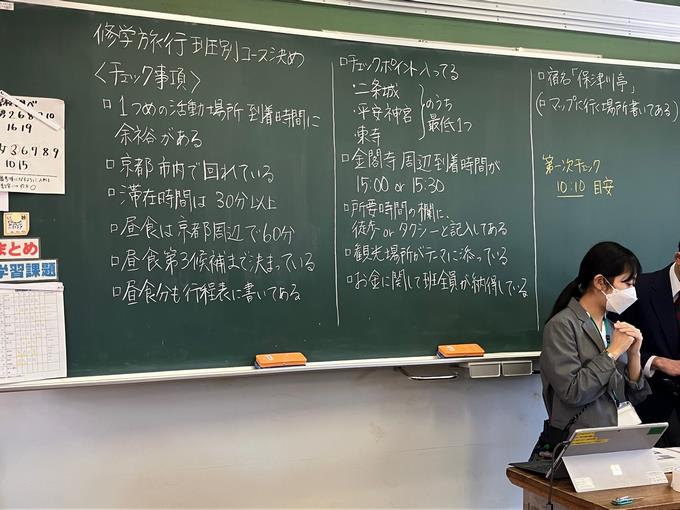 修学旅行 班別コース決め
〈チェック事項〉
□1つめの活動場所 到着時間に
余裕がある
□京都市内で回れている
□滞在時間は 30分以上
□昼食は京都周辺で60分
□昼食第3候補まで決まっている
□昼食分も行程表に書いてある
□チェックポイント入ってる
・二条城
・平安神宮
・東寺
のうち
最低1つ
□金閣寺 周辺到着時間が
15:00 or 15:30
□所要時間の欄に、
徒歩 or タクシーと記入してある
□観光場所がテーマに添っている
□お金に関して班全員が納得している
□宿名「保津川亭」
(□マップに行く場所書いてある)
第一次チェック
10:10 目安
16 19
女 3 6 7 8 9
10 15
まとめ
学習課題